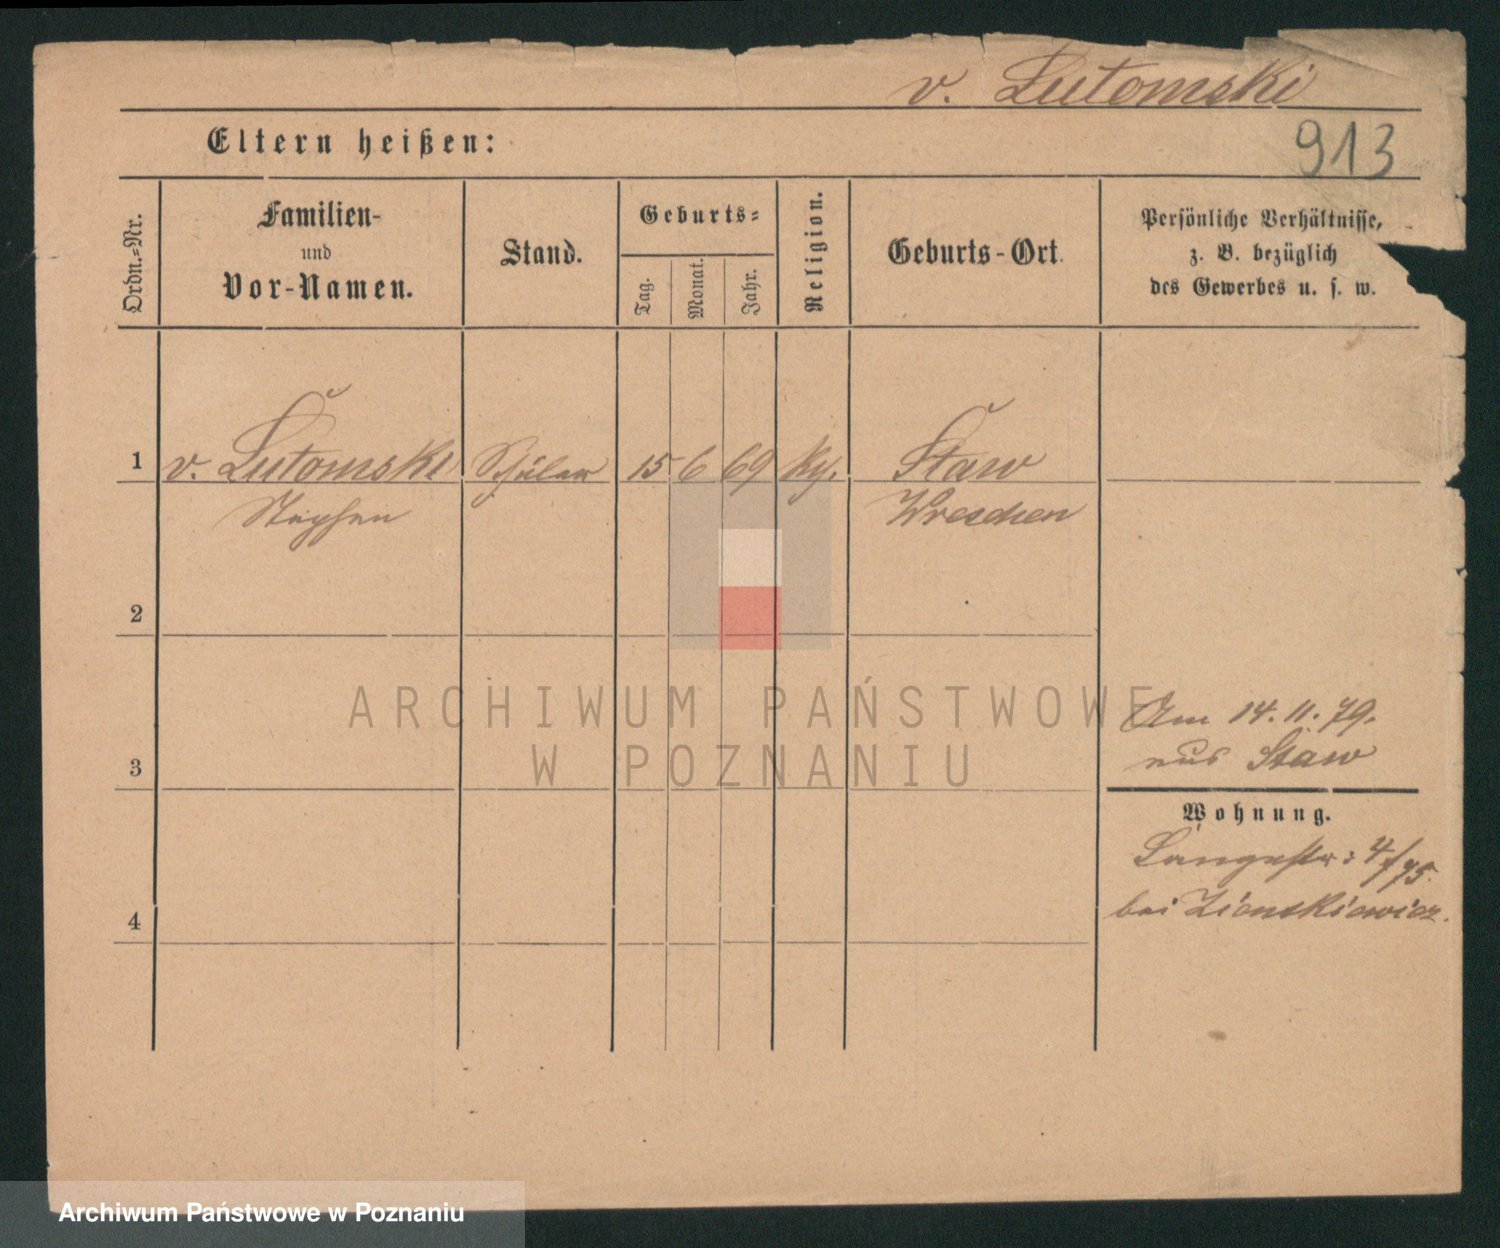 v. Lutomski
913
Eltern heißen:
Ordn.=Nr.
Familien-
und
Vor-Namen.
Stand.
Geburts=
Tag.
Monat.
Jahr.
Religion.
Geburts-Ort.
Persönliche Verhältnisse,
z. B. bezüglich
des Gewerbes u. s. w.
1 v. Lutomski Schüler 15 6 69 Staw
Stephan Wreschen
2
ARCHIWUM PAŃSTWOWE
W POZNANIU
Am 14. 11. 79.
aus Staw
3
Wohnung.
Langestr: 4/75.
bei
4
Archiwum Państwowe w Poznaniu